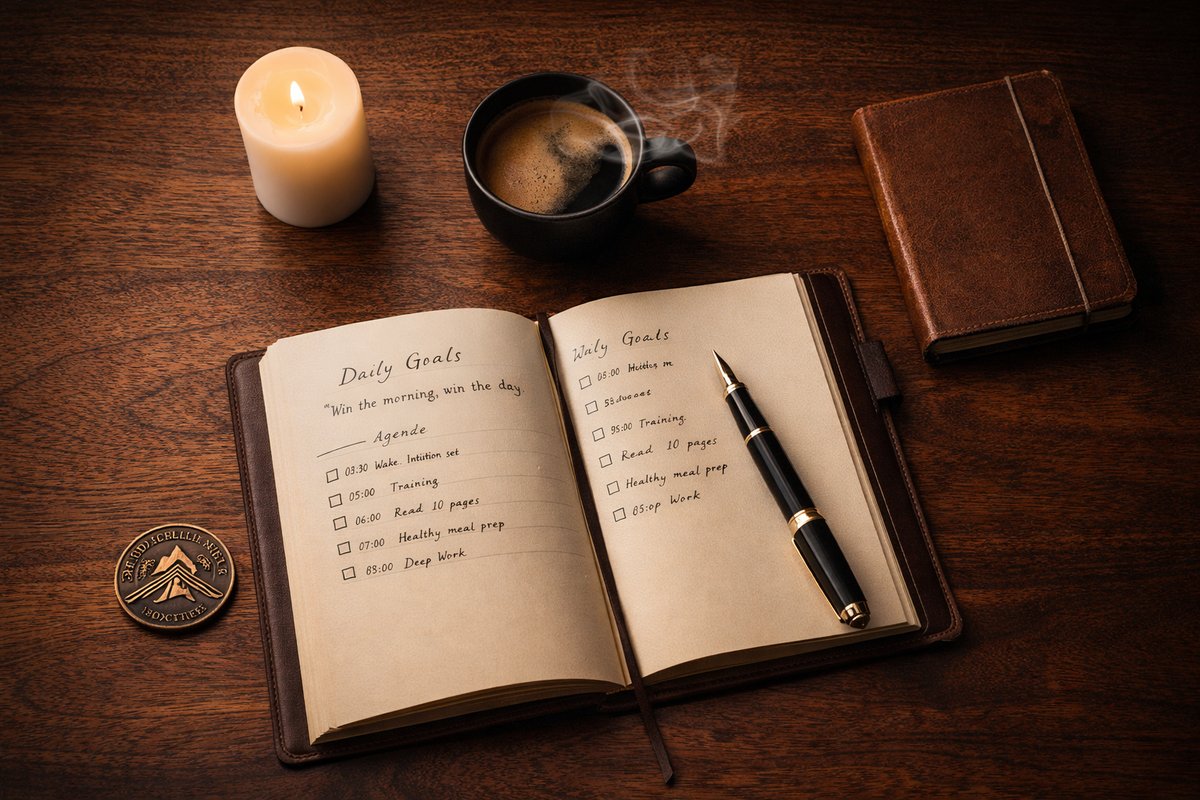 Daily Goals
"Win the morning, win the day.
Agende
03:30 Wake. Intition set
05:00 Training
06:00 Read 10 pages
07:00 Healthy meal prep
08:00 Deep Work
Waly Goals
05:00
95:00 Training.
Read 10 pages
Healthy meal prep
Work